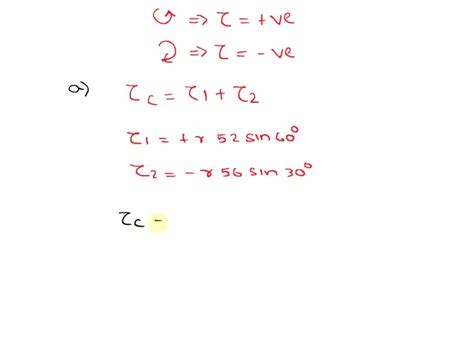 ↺ ⇒ τ = +ve
↻ ⇒ τ = -ve
a) τc = τ1 + τ2
τ1 = + r 52 sin 60°
τ2 = - r 56 sin 30°
τc -